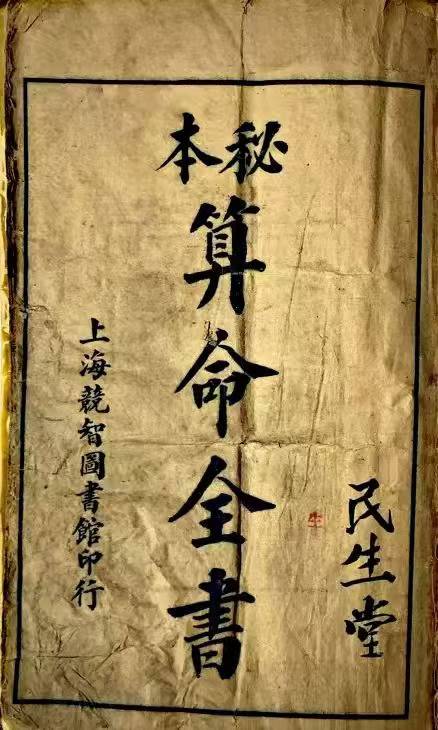 秘本
算命全書
上海競智圖書館印行
民生堂
生